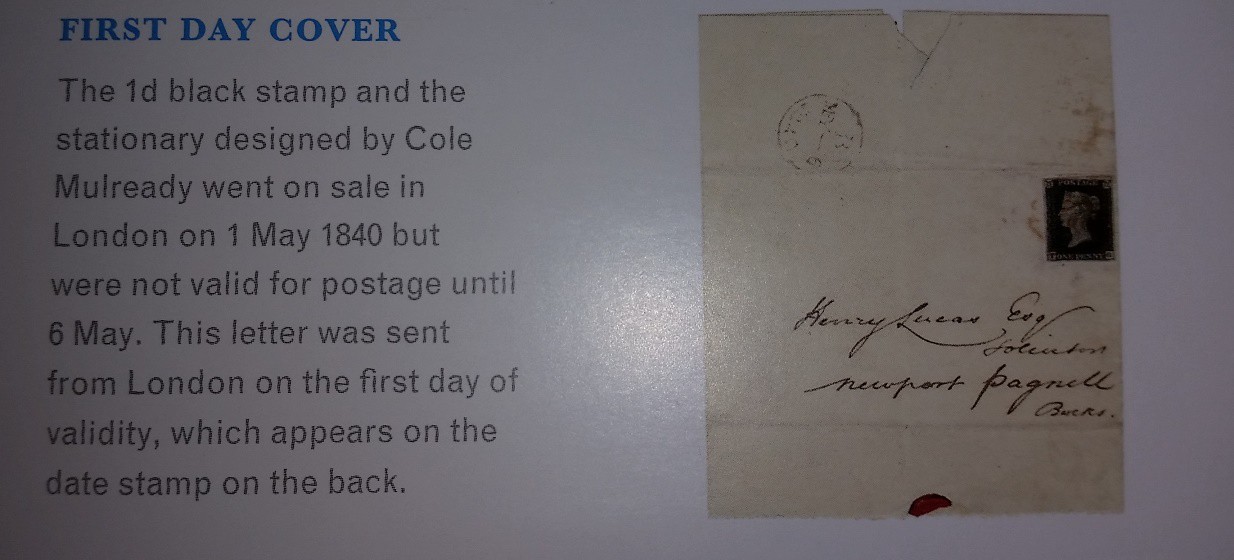 FIRST DAY COVER
The 1d black stamp and the
stationary designed by Cole
Mulready went on sale in
London on 1 May 1840 but
were not valid for postage until
6 May. This letter was sent
from London on the first day of
validity, which appears on the
date stamp on the back.
POSTAGE
ONE PENNY
Henry Lucas Esq
newport pagnell
Bucks.